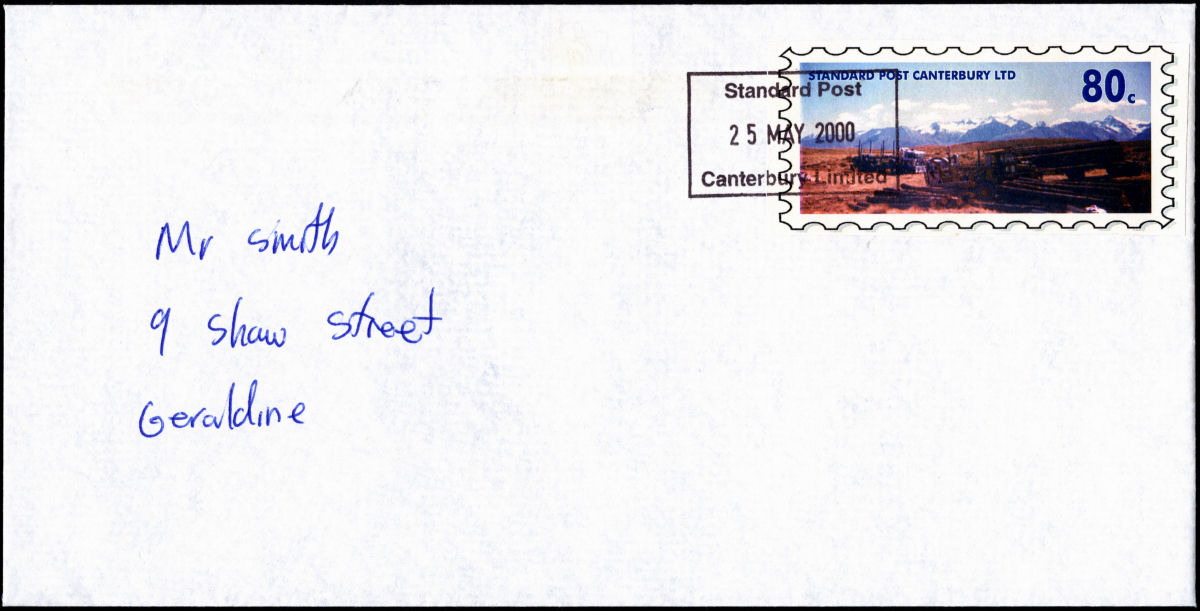 STANDARD POST CANTERBURY LTD
80c
Standard Post
25 MAY 2000
Canterbury Limited
Mr smith
9 shaw street
Geraldine